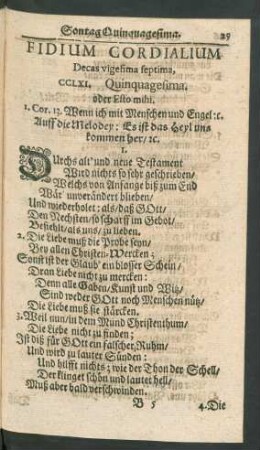 Sontag Quinquagesima. 29
FIDIUM CORDIALIUM
Decas vigesima septima,
CCLXI. Quinquagesima.
oder Esto mihi.
1. Cor. 13. Wenn ich mit Menschen und Engel :c.
Auff die Melodey: Es ist das Heyl uns
kommen her/ ꝛc.
1.
Durchs alt' und neue Testament
Wird nichts so sehr geschrieben/
Welchs von Anfange biß zum End
Wär' unverändert blieben/
Und wiederholet: als/ daß GOtt/
Den Nechsten/ so scharff im Gebot/
Befiehlt/ als uns/ zu lieben.
2. Die Liebe muß die Probe seyn/
Bey allen Christen-Wercken;
Sonst ist der Glaub' ein blosser Schein/
Dran Liebe nicht zu mercken:
Denn alle Gaben/ Kunst und Witz/
Sind weder GOtt noch Menschen nütz/
Die Liebe muß sie stärcken.
3. Weil nun/ in dem Mund Christenthum/
Die Liebe nicht zu finden;
Ist diß für GOtt ein falscher Ruhm/
Und wird zu lauter Sünden:
Und hilfft nichts; wie der Thon der Schell/
Der klinget schön und lautet hell/
Muß aber bald verschwinden.
B 5 4. Die